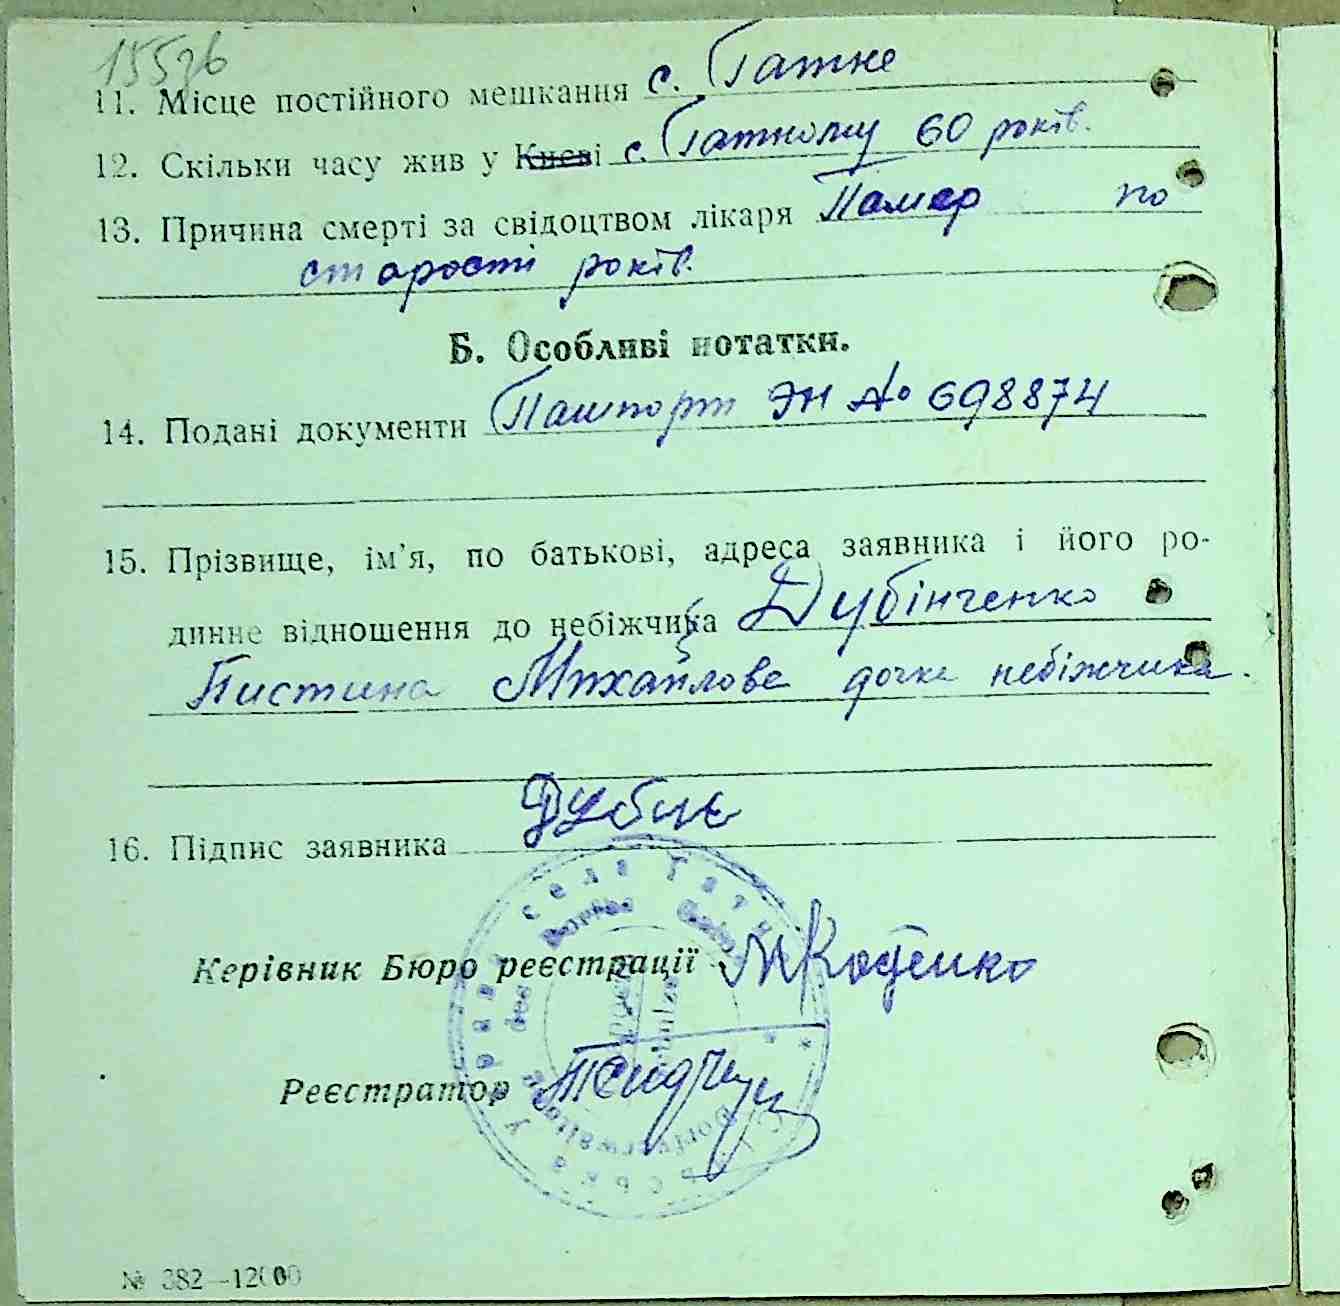 155зб
11. Місце постійного мешкання с. Гатне
12. Скільки часу жив у Києві с. Гатному 60 років.
13. Причина смерті за свідоцтвом лікаря Памер по
старості років.
Б. Особливі нотатки.
14. Подані документи Пашпорт ЭН № 698874
15. Прізвище, ім'я, по батькові, адреса заявника і його ро-
динне відношення до небіжчика Дубінченко
Пистина Михайлове дочка небіжчика.
16. Підпис заявника Дубине
села Гатн
Керівник Бюро реєстрації МКоденко
Реєстратор
№ 382—12000